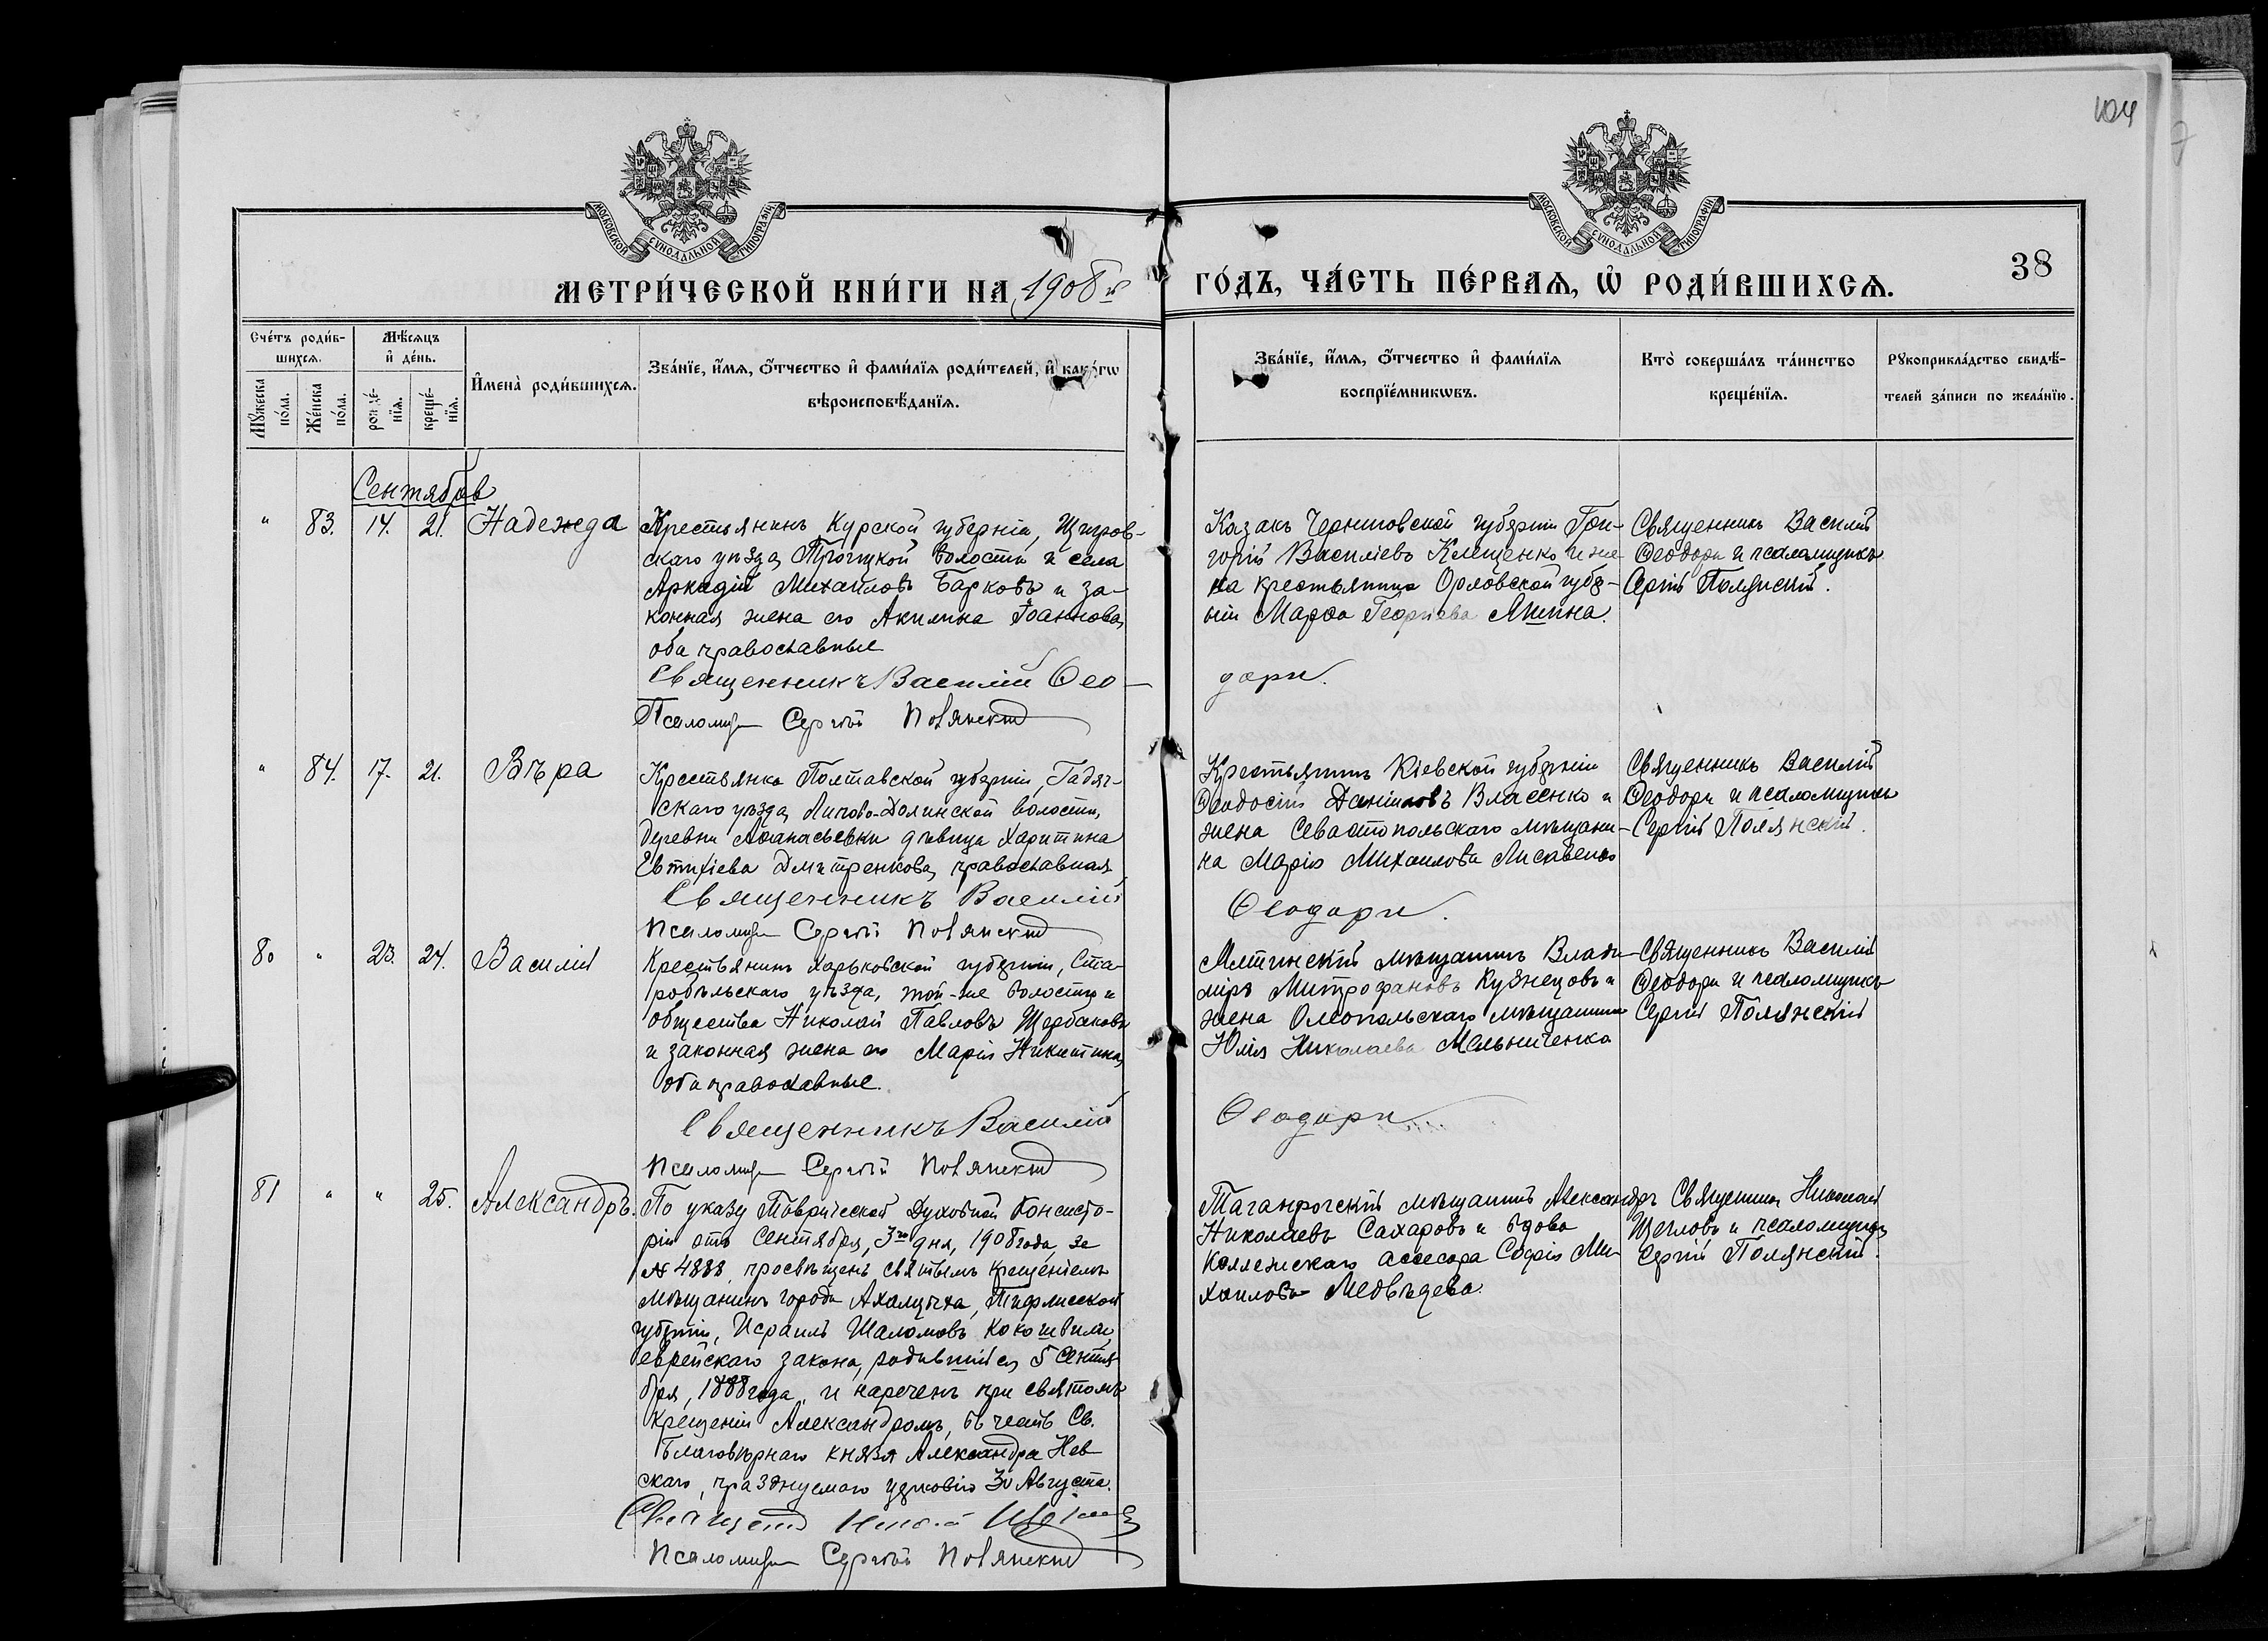 104
38
МОСКОВСКОЙ СУНОДАЛЬНОЙ ТИПОГРАФІИ
МОСКОВСКОЙ СУНОДАЛЬНОЙ ТИПОГРАФІИ
МЕТРИ́ЧЕСКОЙ КНИ́ГИ НА 1908 й ГО́ДЪ, ЧА́СТЬ ПЕ́РВАѦ, Ѡ҆ РОДИ́ВШИХСѦ.
Сче́тъ роди́в-
шихсѧ.
Мѣ́сѧцъ
и҆ де́нь.
Мꙋ́жеска по́ла.
Же́нска по́ла.
рожде́-
нїѧ.
креще́-
нїѧ.
И҆мена̀ роди́вшихсѧ.
Зва́нїе, и҆́мѧ, ѻ҆́тчество и҆ фами́лїѧ роди́телей, и҆ како́гѡ
вѣроисповѣ́данїѧ.
Зва́нїе, и҆́мѧ, ѻ҆́тчество и҆ фами́лїѧ
воспрїе́мникѡвъ.
Кто̀ соверша́лъ та́инство
креще́нїѧ.
Рꙋкоприкла́дство свидѣ́-
телей за́писи по жела́нїю.
Сентябрь
" 83. 14. 21. Надежда
Крестьянинъ Курской губерніи, Щигров-
скаго уѣзда, Троицкой волости и села
Аркадій Михаиловъ Барковъ и за-
конная жена его Акилина Іоаннова,
оба православные
Священникъ Василій Ѳео-
дори.
Псаломщ Сергій Полянскій
Казакъ Черниговской губерніи Гри-
горій Василіевъ Клещенко и же-
на крестьянина Орловской губер-
ніи Марѳа Георгіева Яшина.
Священникъ Василій
Ѳеодори и псаломщикъ
Сергій Полянскій.
" 84. 17. 21. Вѣра
Крестьянка Полтавской губерніи, Гадяч-
скаго уѣзда, Липово-Долинской волости,
деревни Аѳанасьевки дѣвица Харитина
Евтихіева Дмитренкова, православная
Священникъ Василій
Ѳеодори.
Псаломщ Сергій Полянскій
Крестьянинъ Кіевской губерніи
Ѳеодосій Даніиловъ Власенко и
жена Севастопольскаго мѣщани-
на Марія Михаилова
Священникъ Василій
Ѳеодори и псаломщикъ
Сергій Полянскій.
80 " 23. 24. Василій
Крестьянинъ Харьковской губерніи, Ста-
робѣльскаго уѣзда, той-же волости и
общества Николай Павловъ Щербаковъ
и законная жена его Марія Никитина,
оба православные.
Священникъ Василій
Ѳеодори
Псаломщ Сергій Полянскій
мѣщанинъ Влади-
міръ Митрофановъ Кузнецовъ и
жена мѣщанина
Юлія Николаева Мельниченко
Священникъ Василій
Ѳеодори и псаломщикъ
Сергій Полянскій
81 " " 25. Александръ.
По указу Таврической Духовной Консисто-
ріи отъ Сентября, 3го дня, 1908 года, за
№ 4888, просвѣщенъ святымъ крещеніемъ
мѣщанинъ города Ахалцыха, Тифлисской
губерніи, Исраилъ Шаломовъ Кокошвили,
еврейскаго закона, родившійся 5 Сентя-
бря, 1888 года, и нареченъ при святомъ
крещеніи Александромъ, въ честь Св.
Благовѣрнаго князя Александра Нев-
скаго, празднуемаго церковію 30 Августа.
Псаломщ Сергій Полянскій
Таганрогскій мѣщанинъ Александръ
Николаевъ Сахаровъ и вдова
Коллежскаго ассесора Софія Ми-
хаилова Медвѣдева.
Священникъ Николай
Щегловъ и псаломщикъ
Сергій Полянскій.